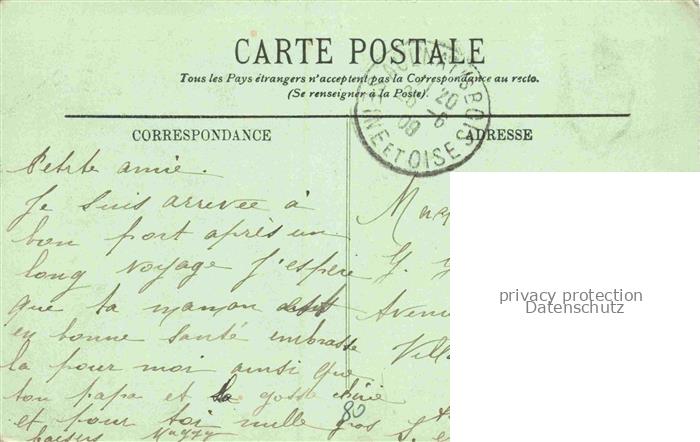 CARTE POSTALE
Tous les Pays étrangers n'acceptent pas la Correspondance au recto.
(Se renseigner à la Poste).
CORRESPONDANCE
ADRESSE
20
-6
09
SEINE ET OISE
Petite amie.
Je suis arrivée à
bon port après un
long voyage j'espère
que ta maman est
en bonne santé embrasse
la pour moi ainsi que
ton papa et la gosse
et pour toi mille gros
baisers
G.
Avenu
Villa
S.
80
privacy protection
Datenschutz